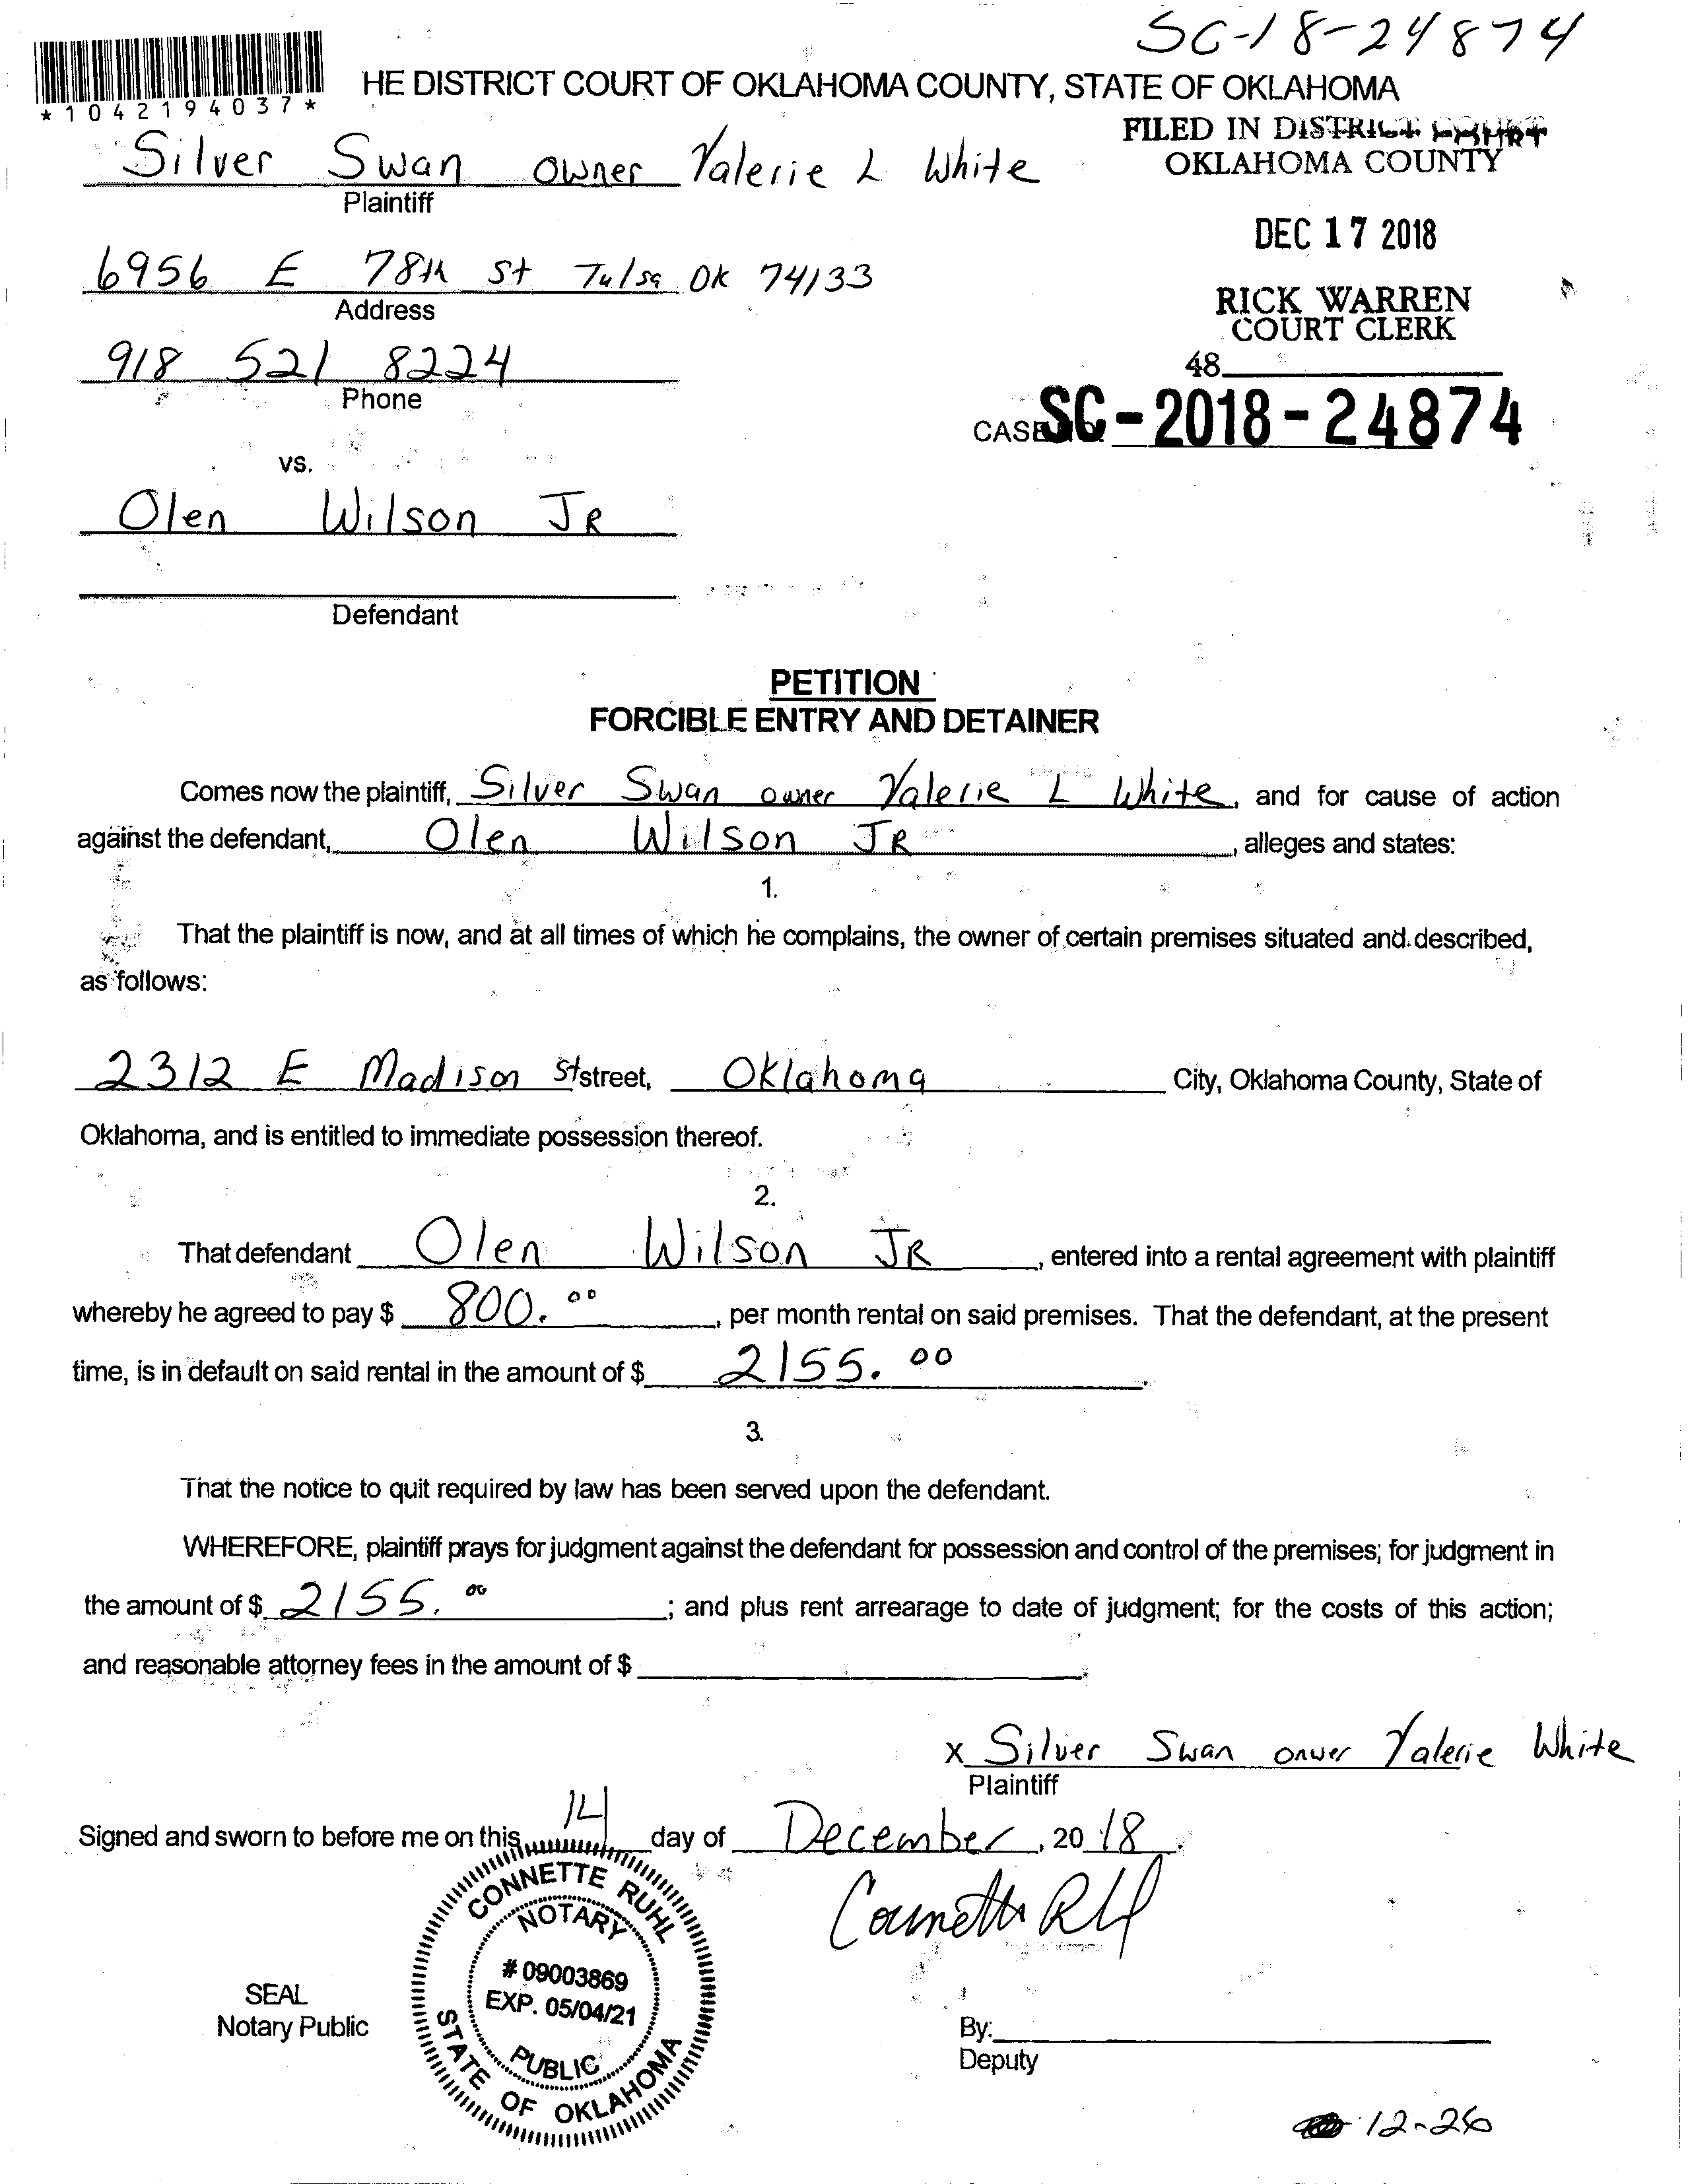 SC-18-24874
*1042194037*
HE DISTRICT COURT OF OKLAHOMA COUNTY, STATE OF OKLAHOMA
FILED IN DISTRICT COURT
OKLAHOMA COUNTY
Silver Swan owner Valerie L White
Plaintiff
DEC 17 2018
6956 E 78th St Tulsa OK 74133
Address
RICK WARREN
COURT CLERK
48
918 521 8224
Phone
CASE SC-2018-24874
vs.
Olen Wilson JR
Defendant
PETITION
FORCIBLE ENTRY AND DETAINER
Comes now the plaintiff, Silver Swan owner Valerie L White, and for cause of action
against the defendant, Olen Wilson JR, alleges and states:
1.
That the plaintiff is now, and at all times of which he complains, the owner of certain premises situated and described,
as follows:
2312 E Madison St street, Oklahoma City, Oklahoma County, State of
Oklahoma, and is entitled to immediate possession thereof.
2.
That defendant Olen Wilson JR, entered into a rental agreement with plaintiff
whereby he agreed to pay $ 800.00, per month rental on said premises. That the defendant, at the present
time, is in default on said rental in the amount of $ 2155.00.
3.
That the notice to quit required by law has been served upon the defendant.
WHEREFORE, plaintiff prays for judgment against the defendant for possession and control of the premises; for judgment in
the amount of $ 2155.00; and plus rent arrearage to date of judgment; for the costs of this action;
and reasonable attorney fees in the amount of $
x Silver Swan onwer Valerie White
Plaintiff
Signed and sworn to before me on this 14 day of December, 2018.
CONNETTE RUHL
NOTARY
# 09003869
EXP. 05/04/21
PUBLIC
STATE OF OKLAHOMA
SEAL
Notary Public
By:
Deputy
12-26